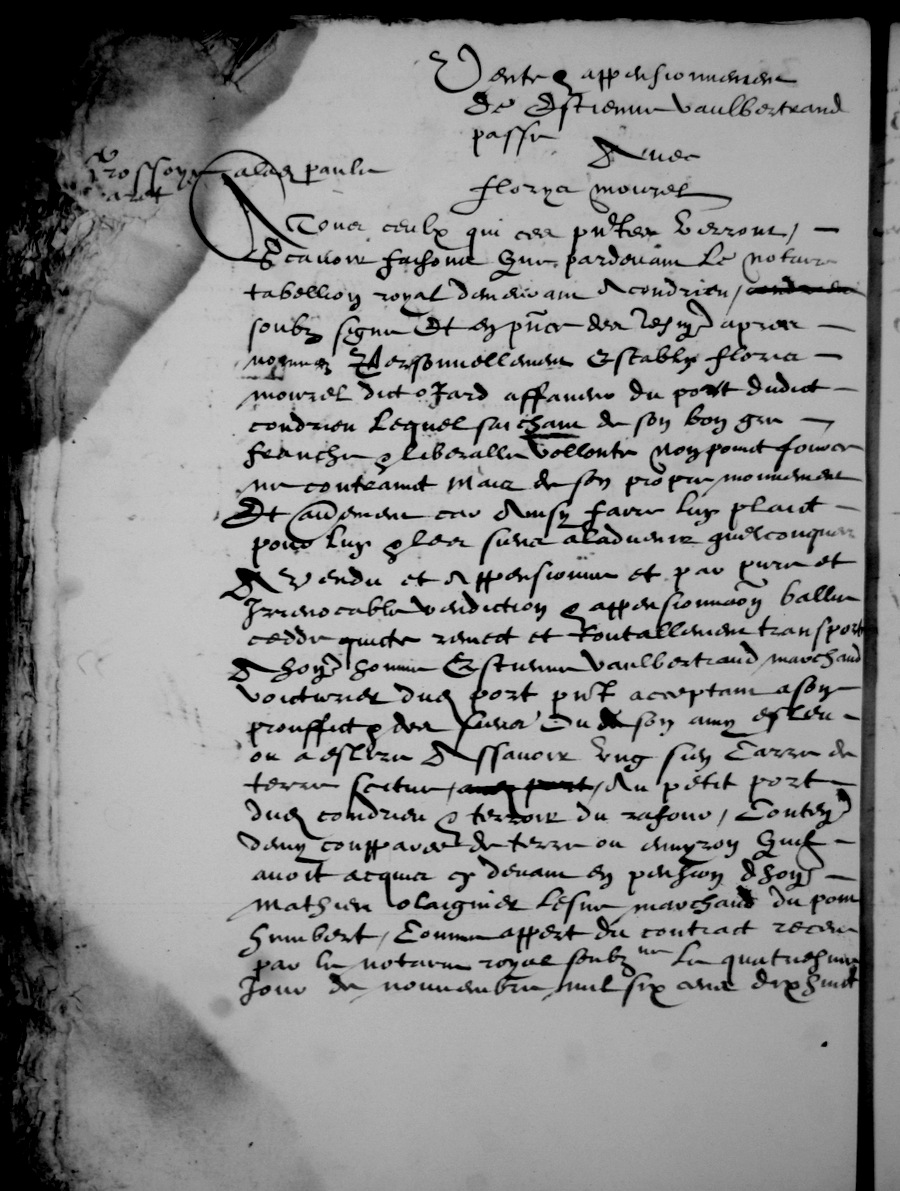 Vente & appensionnement
de Estienne Vaulbertrand
passé
Avec
Florys Mourel
Grossoyé
A Tous ceulx qui ces pntes verront,
Scavoir faisons que pardevant le notaire
tabellion royal demeurant a condrieu, condrieu
soubz signé Et en pnce des tesmgs apres
nommez Personnellement Estably floris
mourel dict ojard affaneur du port dudict
condrieu Lequel saichant de son bon gre
franche & liberalle vollonte non point fourcé
ne contrainct Mais de son propre mouvement
Et aultrement car Ainsy faire luy plaict
pour luy & les siens a ladvenir quelconques
A Vendu et Appensionne et par pure et
Irrevocable vendiction & appensionnaon baille
cedde quicte remect et toutallement transporte
A hone homme Estienne Vaulbertrand marchand
voicturier dud port pnt acceptant a son
prouffict & des siens Ou de son amy esleu
ou a eslire Assavoir Ung sien Carre de
terre scitue, aud port, Au petit port
dud condrieu & terroir du rafour, Content
demy coupparee de terre ou environ Quil
avoit acquis cy devant en pension dhone
Mathieu olaignier Lesne marchand du pont
humbert, Comme appert du contract receu
par le notaire royal soubz ne Le quatriesme
Jour de nouvembre mil six cens dixhuict